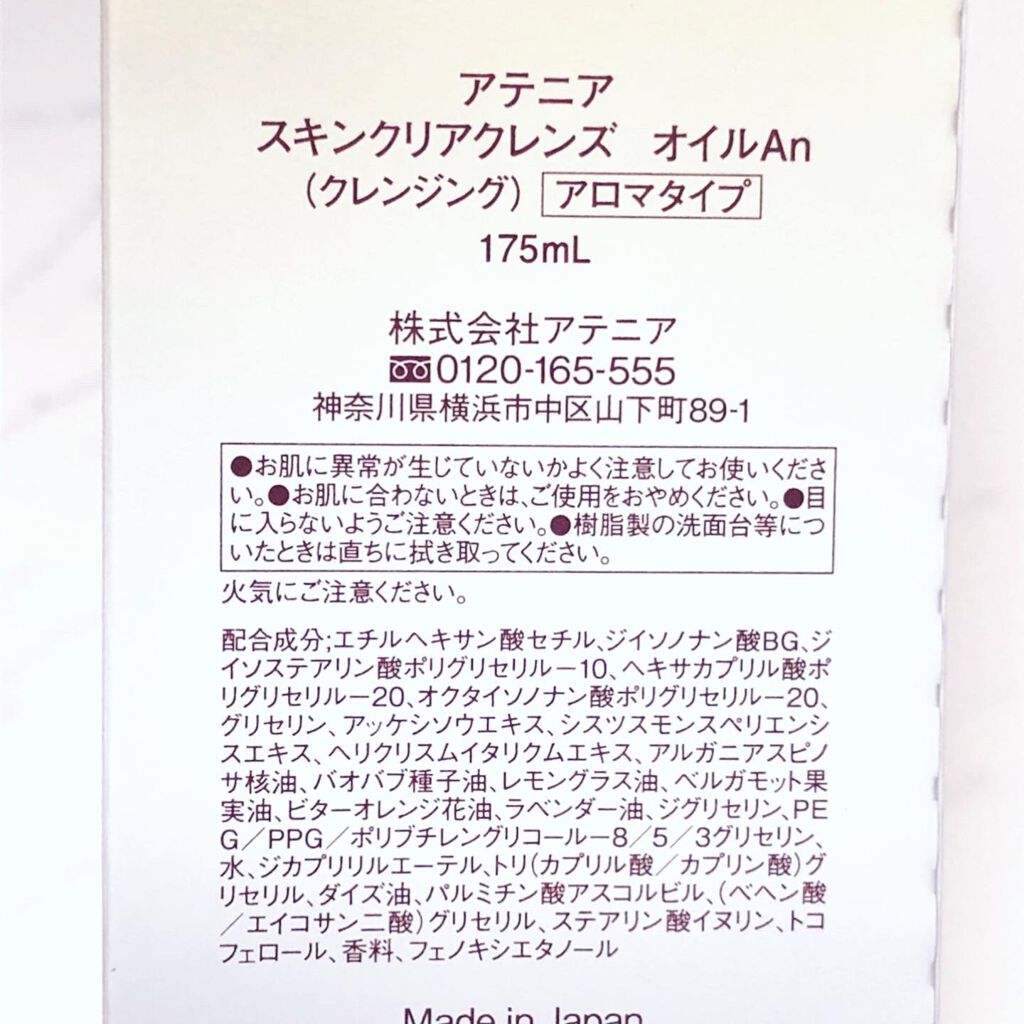 アテニア
スキンクリアクレンズ オイルAn
(クレンジング) アロマタイプ
175mL
株式会社アテニア
0120-165-555
神奈川県横浜市中区山下町89-1
●お肌に異常が生じていないかよく注意してお使いくださ
い。●お肌に合わないときは、ご使用をおやめください。●目
に入らないようご注意ください。●樹脂製の洗面台等につ
いたときは直ちに拭き取ってください。
火気にご注意ください。
配合成分;エチルヘキサン酸セチル、ジイソノナン酸BG、ジ
イソステアリン酸ポリグリセリルー10、ヘキサカプリル酸ポ
リグリセリルー20、オクタイソノナン酸ポリグリセリルー20、
グリセリン、アッケシソウエキス、シスツスモンスペリエンシ
スエキス、ヘリクリスムイタリクムエキス、アルガニアスピノ
サ核油、バオバブ種子油、レモングラス油、ベルガモット果
実油、ビターオレンジ花油、ラベンダー油、ジグリセリン、PE
G／PPG／ポリブチレングリコールー8／5／3グリセリン、
水、ジカプリリルエーテル、トリ(カプリル酸／カプリン酸)グ
リセリル、ダイズ油、パルミチン酸アスコルビル、(ベヘン酸
／エイコサン二酸)グリセリル、ステアリン酸イヌリン、トコ
フェロール、香料、フェノキシエタノール
Made in Japan